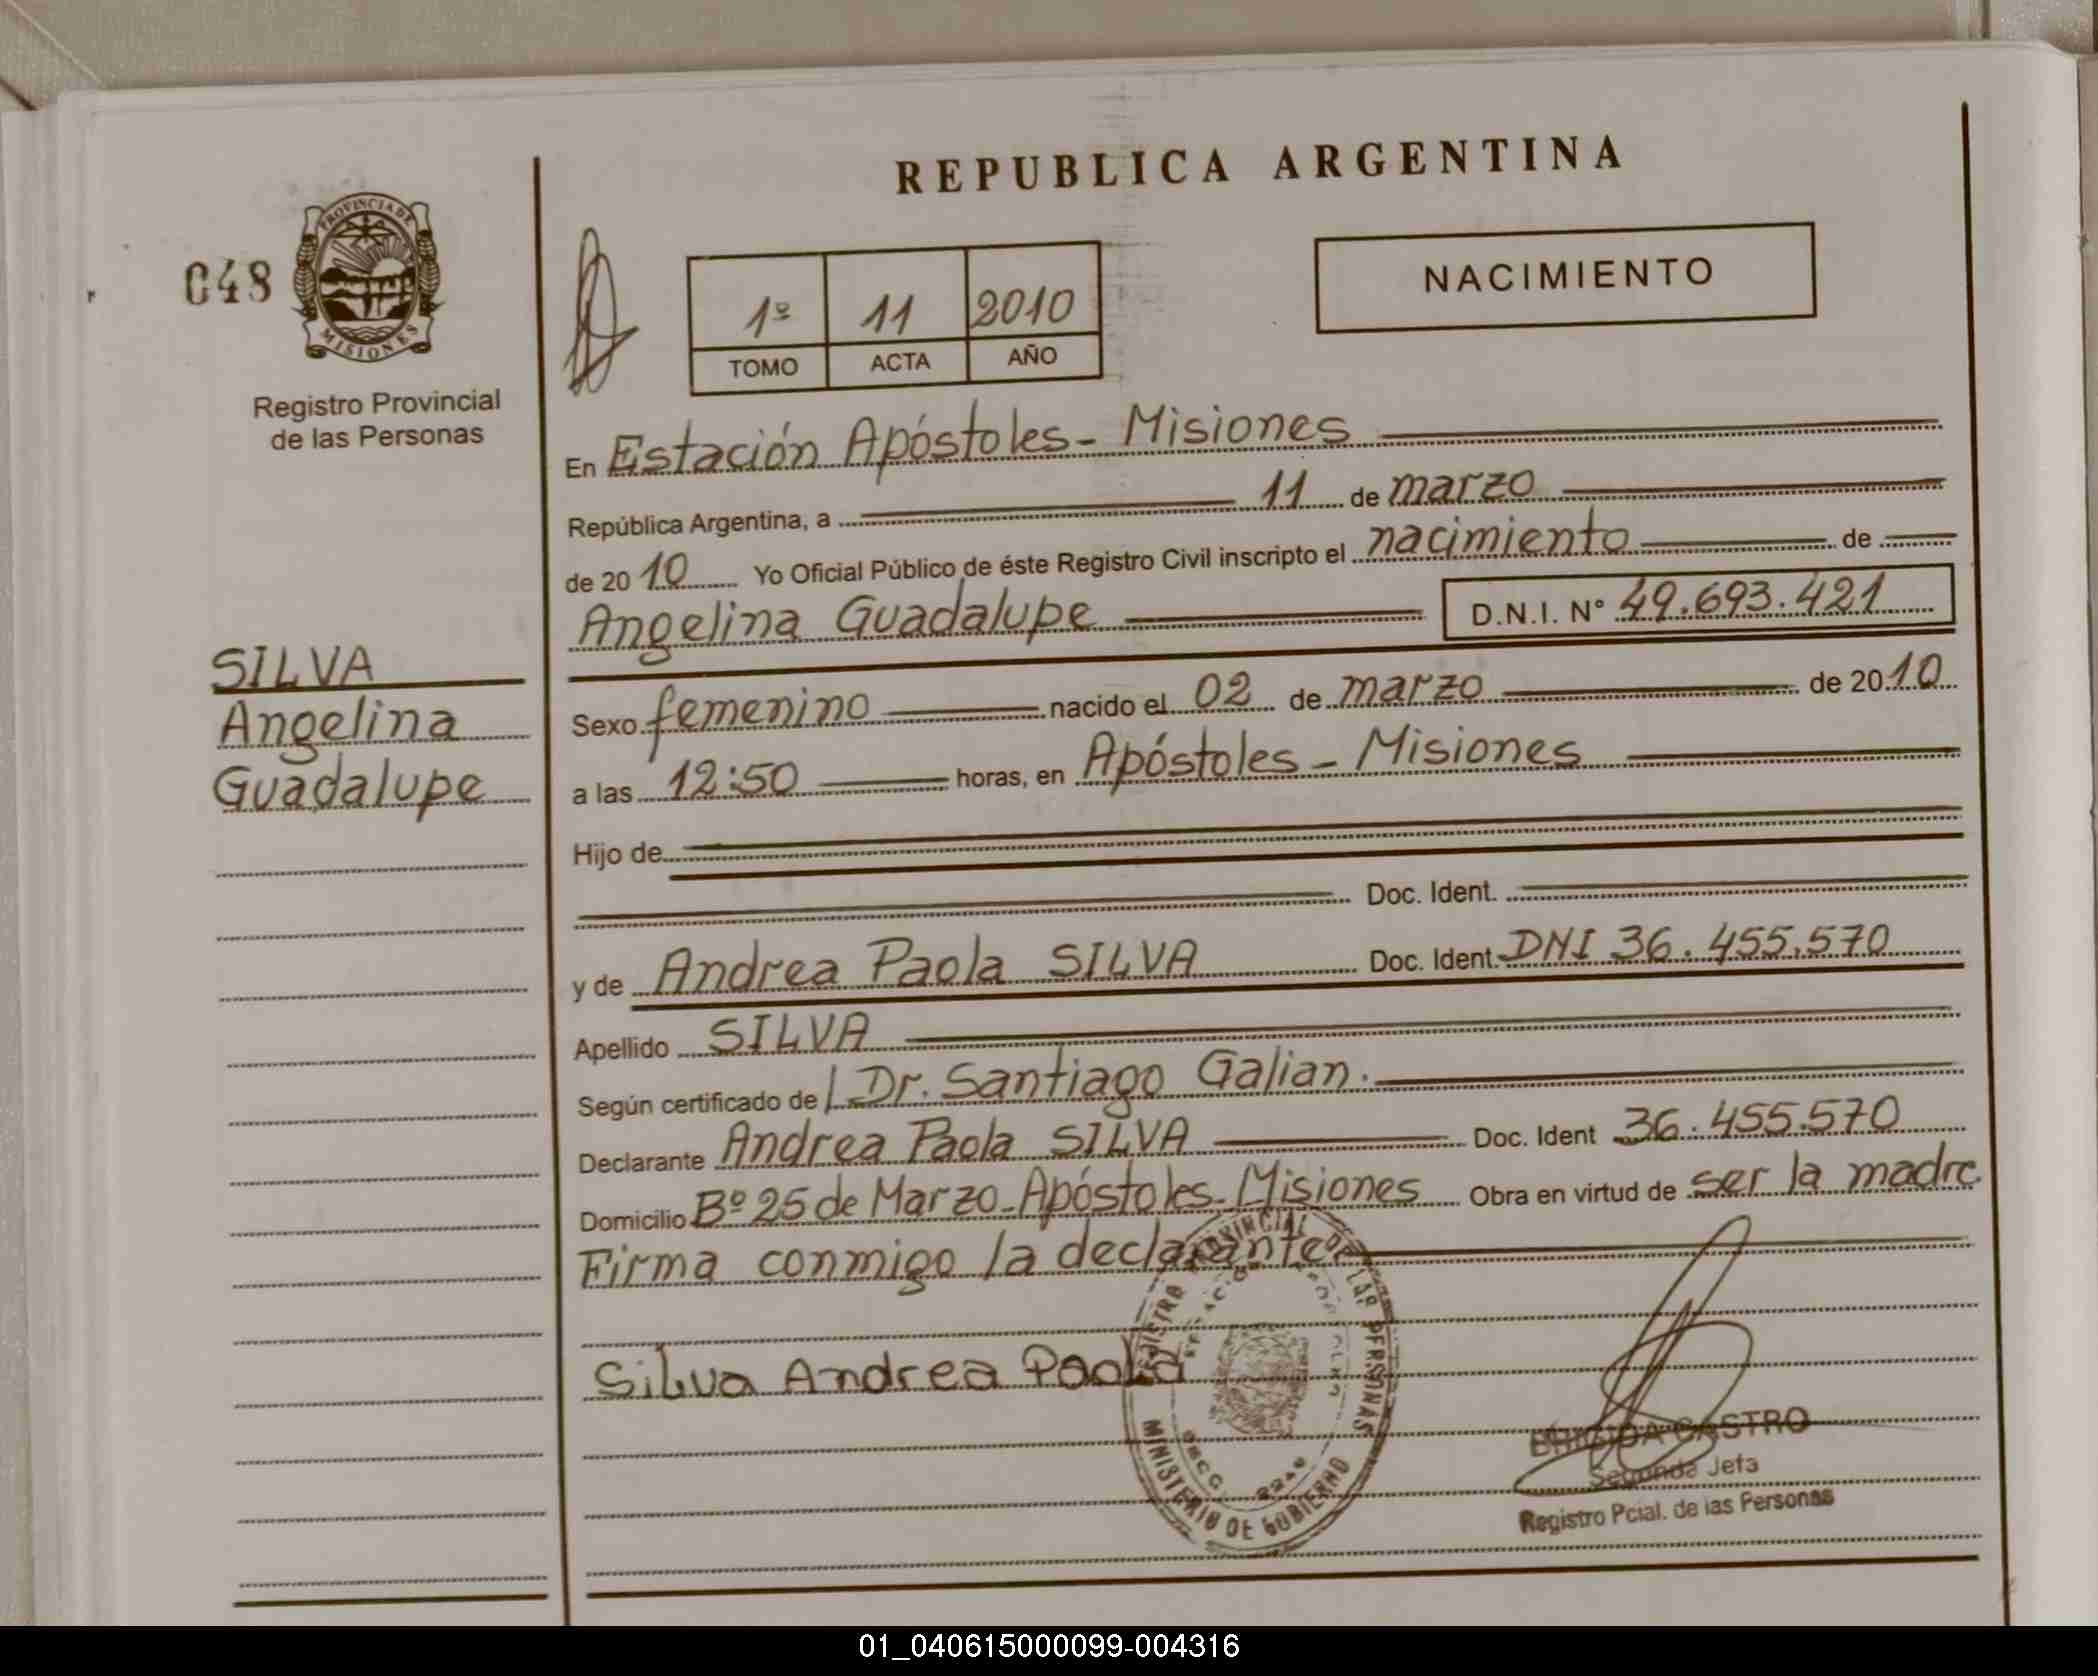 REPUBLICA ARGENTINA
048
PROVINCIA DE
MISIONES
Registro Provincial
de las Personas
1º 11 2010
TOMO ACTA AÑO
NACIMIENTO
En Estación Apóstoles - Misiones
República Argentina, a 11 de marzo
de 2010 Yo Oficial Público de éste Registro Civil inscripto el nacimiento de
Angelina Guadalupe D.N.I. Nº 49.693.421
SILVA
Angelina
Guadalupe
Sexo femenino nacido el 02 de marzo de 2010
a las 12:50 horas, en Apóstoles - Misiones
Hijo de
Doc. Ident.
y de Andrea Paola SILVA Doc. Ident. DNI 36.455.570
Apellido SILVA
Según certificado de Dr. Santiago Galian.
Declarante Andrea Paola SILVA Doc. Ident 36.455.570
Domicilio Bº 25 de Marzo - Apóstoles - Misiones Obra en virtud de ser la madre
Firma conmigo la declarante
Silva Andrea Paola
REGISTRO PROVINCIAL DE LAS PERSONAS
MINISTERIO DE GOBIERNO
BRIGIDA CASTRO
Segunda Jefa
Registro Pcial. de las Personas
01_040615000099-004316